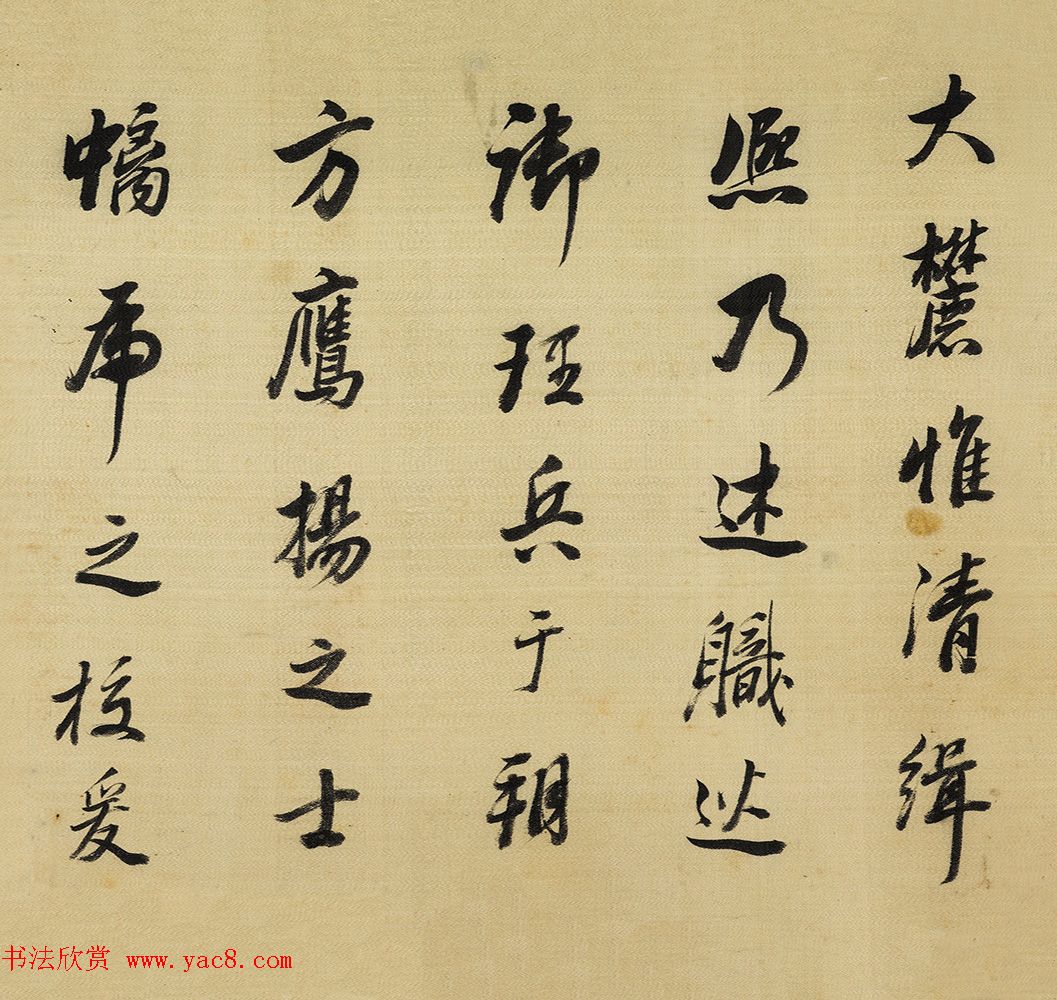 大麓惟清緝
熙乃述職巡
御理兵于朔
方鷹揚之士
螭虎之校爰
书法欣赏 www.yac8.com